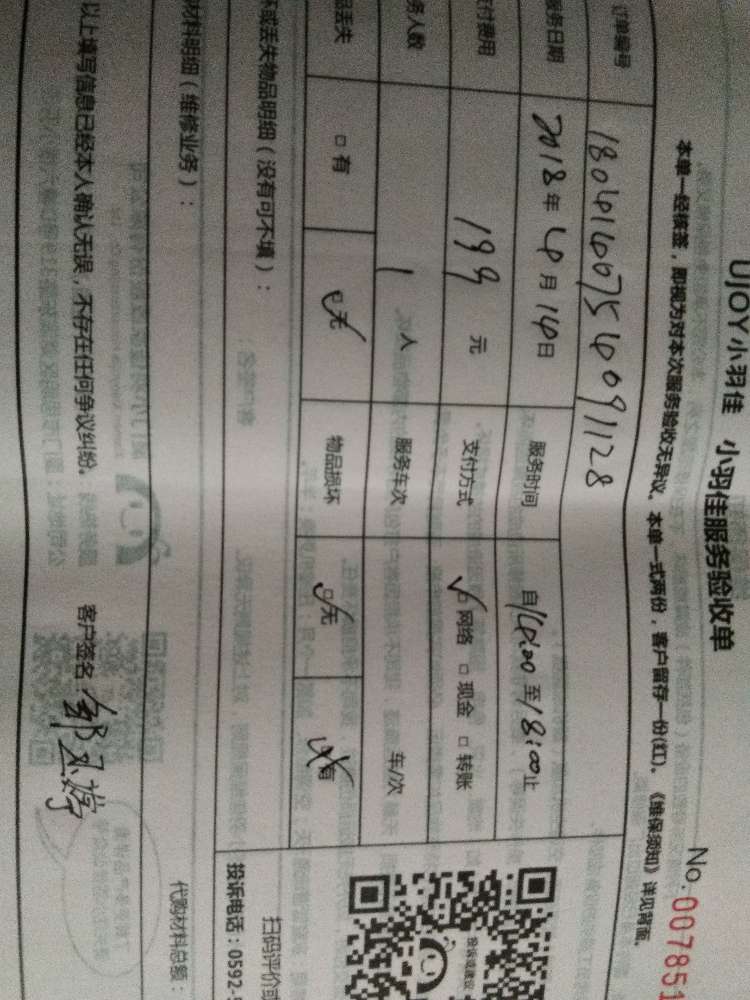 UJOY小羽佳 小羽佳服务验收单
No.007851
本单一经核签，即视为对本次服务验收无异议。本单一式两份，客户留存一份(红)。《维保须知》详见背面。
订单编号 18041407540091128
服务日期 2018年4月14日 服务时间 自14:00至18:00止
支付费用 199元 支付方式 □网络 □现金 □转账
务人数 1人 服务车次 车/次
品丢失 □有 □无 物品损坏 □无 □有
坏或丢失物品明细（没有可不填）：
扫码评价或
投诉或建议
投诉电话：0592-5
材料明细（维修业务）：
代购材料总额：
以上填写信息已经本人确认无误，不存在任何争议纠纷。 客户签名：